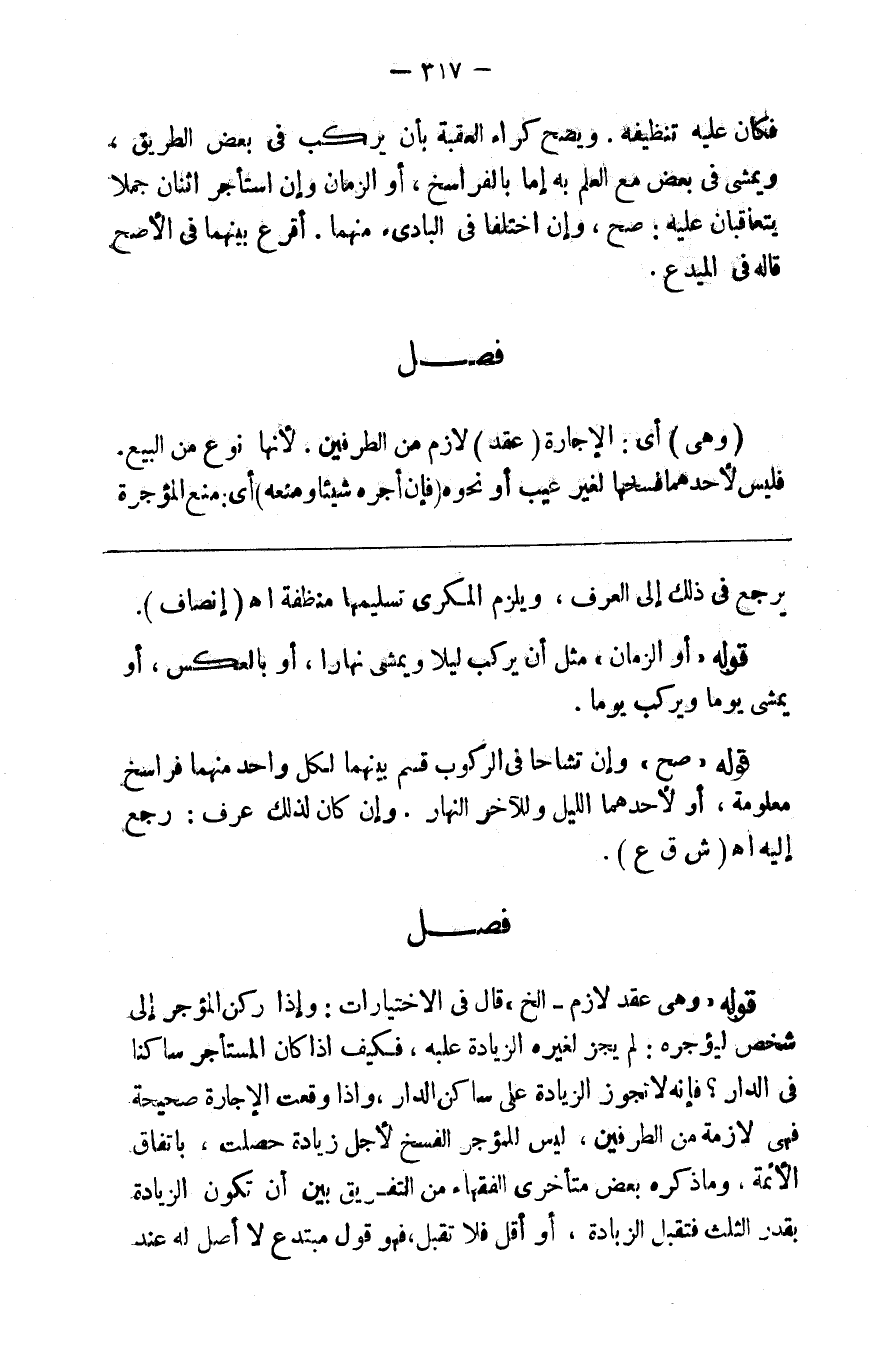 — ٣١٧ —
فكان عليه تنظيفه . ويصح كراء العقبة بأن يركب فى بعض الطريق ،
ويمشى فى بعض مع العلم به إما بالفراسخ ، أو الزمان وإن استأجر اثنان جملا
يتعاقبان عليه : صح ، وإن اختلفا فى البادىء منهما . أقرع بينهما فى الأصح
قاله فى المبدع .
فصل
( وهى ) أى : الإجارة ( عقد ) لازم من الطرفين . لأنها نوع من البيع .
فليس لأحدهما فسخها لغير عيب أو نحوه ( فإن أجره شيئا ومنعه ) أى : منع المؤجر ة
يرجع فى ذلك إلى العرف ، ويلزم المكرى تسليمها منظفة اه ( إنصاف ) .
قوله « أو الزمان » مثل أن يركب ليلا ويمشى نهارا ، أو بالعكس ، أو
يمشى يوما ويركب يوما .
قوله « صح » وإن تشاحا فى الركوب قسم بينهما لكل واحد منهما فراسخ
معلومة ، أو لأحدهما الليل وللآخر النهار . وإن كان لذلك عرف : رجع
إليه اه ( ش ق ع ) .
فصل
قوله « وهى عقد لازم - الخ » قال فى الاختيارات : وإذا ركن المؤجر إلى
شخص ليؤجره : لم يجز لغيره الزيادة عليه ، فكيف اذا كان المستأجر ساكنا
فى الدار ؟ فإنه لا تجوز الزيادة على ساكن الدار ، واذا وقعت الإجارة صحيحة
فهى لازمة من الطرفين ، ليس للمؤجر الفسخ لأجل زيادة حصلت ، باتفاق
الأئمة . وماذكره بعض متأخرى الفقهاء من التفريق بين أن تكون الزيادة
بقدر الثلث فتقبل الزيادة ، أو أقل فلا تقبل ، فهو قول مبتدع لا أصل له عند